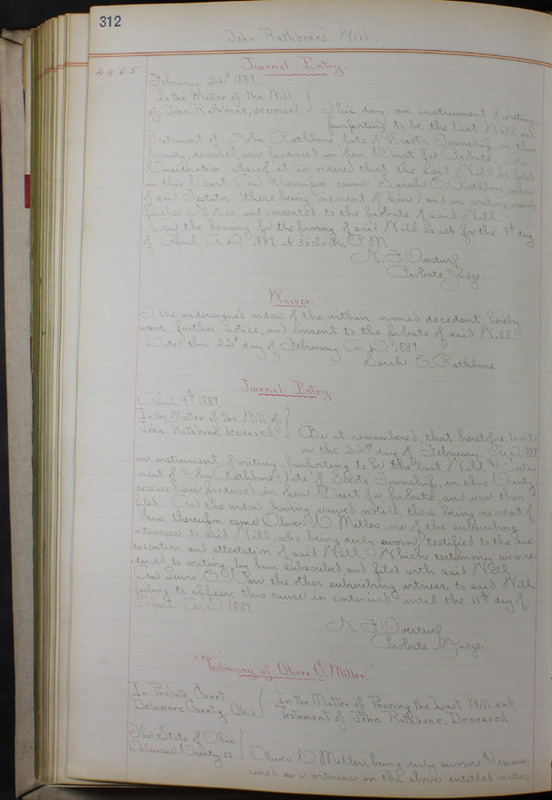 312
John Rathbone's Will.
4465
Journal Entry.
February 22d 1889.
In the Matter of the Will
of John Rathbone, deceased
This day an instrument of writing
purporting to be the last Will and
Testament of John Rathbone late of Scioto Township, in this
County, deceased, was produced in open Court for Probate. In
Consideration whereof it is ordered that the said Will be filed
in this Court. And thereupon came Sarah E. Rathbone widow
of said Testator (there being no next of kin) and in writing, waived
further Notice and consented to the probate of said Will.
And the hearing for the proving of said Will is set for the 9th day
of April A.D. 1889, at 3 o'clock, P.M.
N. F. Overturf
Probate Judge
Waiver.
I the undersigned widow of the within named decedent, hereby
waive further notice, and consent to the probate of said Will.
Dated this 22d day of February A.D. 1889.
Sarah E. Rathbone.
Journal Entry
April 9th 1889.
In the Matter of the Will of
John Rathbone, deceased
Be it remembered, that heretofore, to wit:
on the 22nd day of February A.D. 1889
an instrument of writing, purporting to be the last Will & Testa-
ment of John Rathbone, late of Scioto Township, in this County
deceased was produced in open Court for probate, and was then
filed. And the widow having waived notice there being no next of
kin thereupon came Oliver O. Miller, one of the subscribing
witnesses to said Will, who being duly sworn, testified to the due
execution and attestation of said Will. Which testimony was re-
duced to writing, by him subscribed and filed with said Will
And Lewis the other subscribing witness to said Will
failing to appear, this cause is continued until the 11th day of
April A.D. 1889
N. F. Overturf
Probate Judge.
"Testimony of Oliver O. Miller."
In Probate Court
Delaware County, Ohio.
In the Matter of Proving the Last Will and
Testament of John Rathbone, Deceased
The State of Ohio
Delaware County, ss.
Oliver O. Miller, being duly sworn & exam-
ined as a witness in the above entitled matter